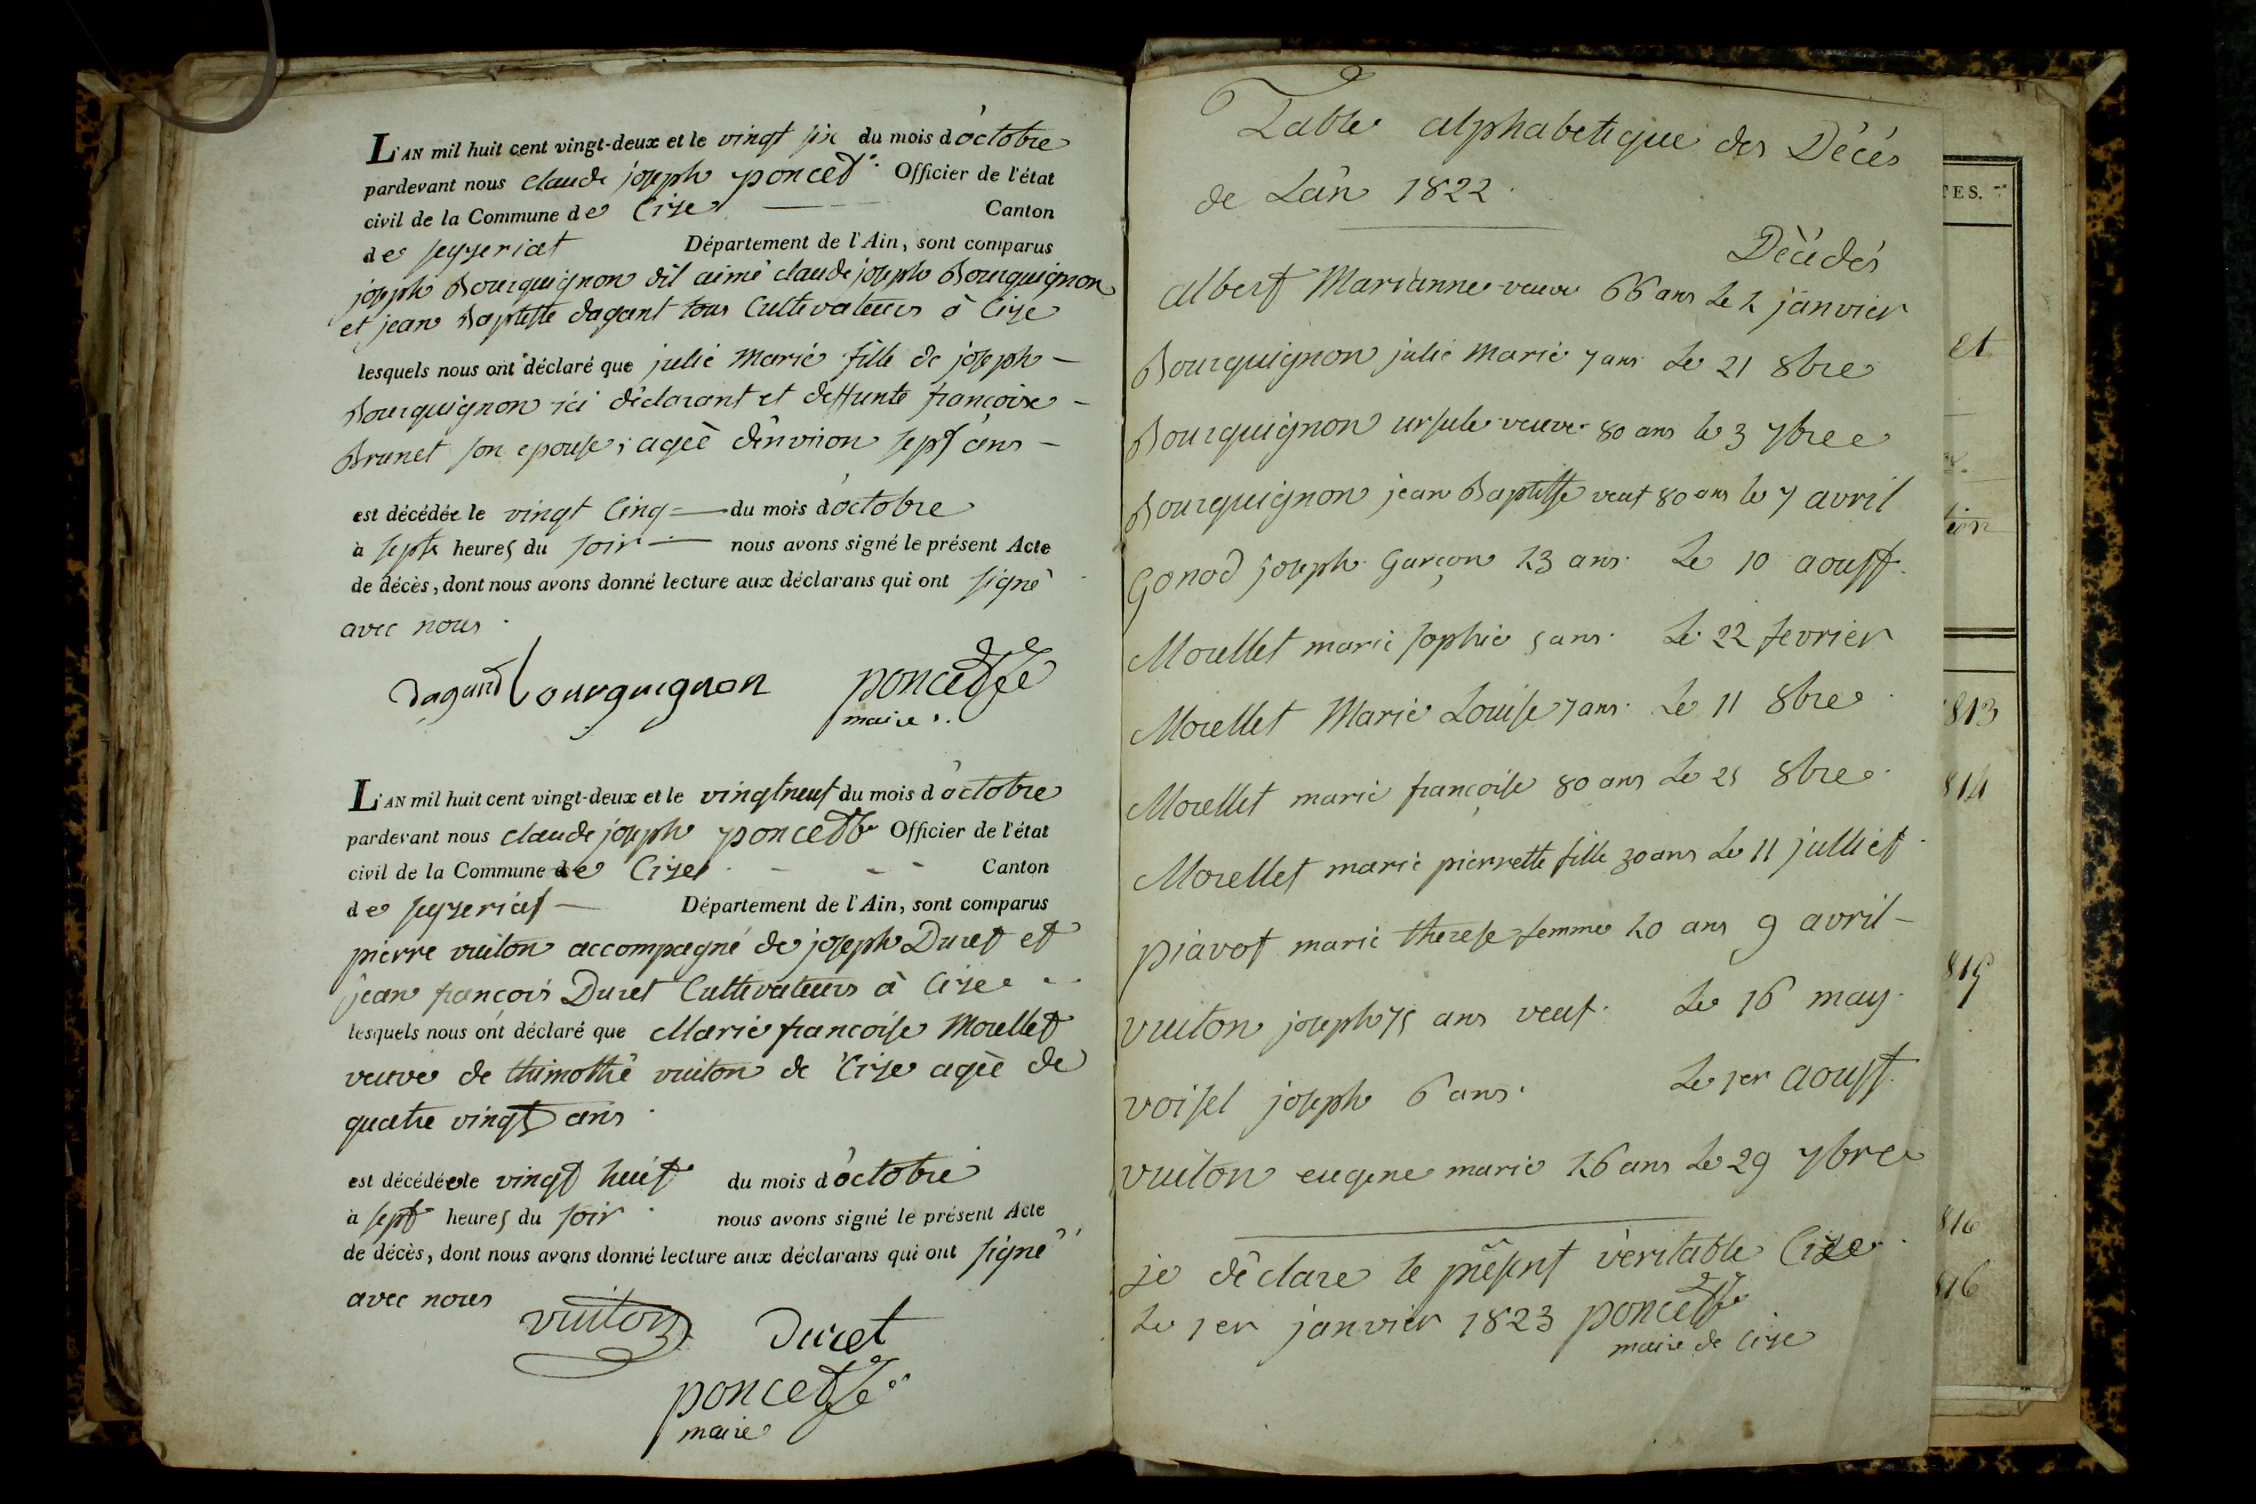 L'AN mil huit cent vingt-deux et le vingt six du mois d'octobre
pardevant nous claude joseph poncet Officier de l'état
civil de la Commune de Cize Canton
de seyzeriat Département de l'Ain, sont comparus
joseph Bourguignon dit aimé claude joseph Bourguignon
et jean Baptiste dagant tous Cultivateurs à Cize
lesquels nous ont déclaré que julie Marie fille de joseph
Bourguignon ici déclarant et deffunte francoise
Brunet son epouse, agèe d'environ sept ans
est décédée le vingt Cinq du mois d'octobre
à sept heures du soir nous avons signé le présent Acte
de décès, dont nous avons donné lecture aux déclarans qui ont signé
avec nous
Dagand Bourguignon poncet
maire
L'AN mil huit cent vingt-deux et le vingtneuf du mois d'octobre
pardevant nous claude joseph poncet Officier de l'état
civil de la Commune de Cize Canton
de seyzeriat Département de l'Ain, sont comparus
pierre vuiton accompagné de joseph Duret et
jean françois Duret Cultivateurs à Cize
lesquels nous ont déclaré que Marie francoise Morellet
veuve de thimothé vuiton de Cize agèe de
quatre vingts ans
est décédée le vingt huit du mois d'octobre
à sept heures du soir nous avons signé le présent Acte
de décès, dont nous avons donné lecture aux déclarans qui ont signé
avec nous
vuiton Duret
poncet
maire
Table alphabetique des Décés
de Lan 1822
Décédés
albert Marianne veuve 66 ans Le 2 janvier
Bourguignon julie Marie 7 ans Le 21 8bre
Bourguignon ursule veuve 80 ans le 3 7bre
Bourguignon jean Baptiste veuf 80 ans le 7 avril
Gonod joseph Garçon 23 ans Le 10 aoust
Morellet marie sophie 5 ans Le 22 fevrier
Morellet Marie Louise 7 ans Le 11 8bre
Morellet marie françoise 80 ans Le 28 8bre
Morellet marie pierrette fille 30 ans Le 11 julliet
piavot marie therese femme 20 ans 9 avril
vuiton joseph 75 ans veuf Le 16 may
voisel joseph 6 ans Le 1er aoust
vuiton eugene marie 26 ans Le 29 7bre
je déclare le présent véritable Cize
Le 1er janvier 1823 poncet
maire de Cize
TES.
et
813
814
815
816
816